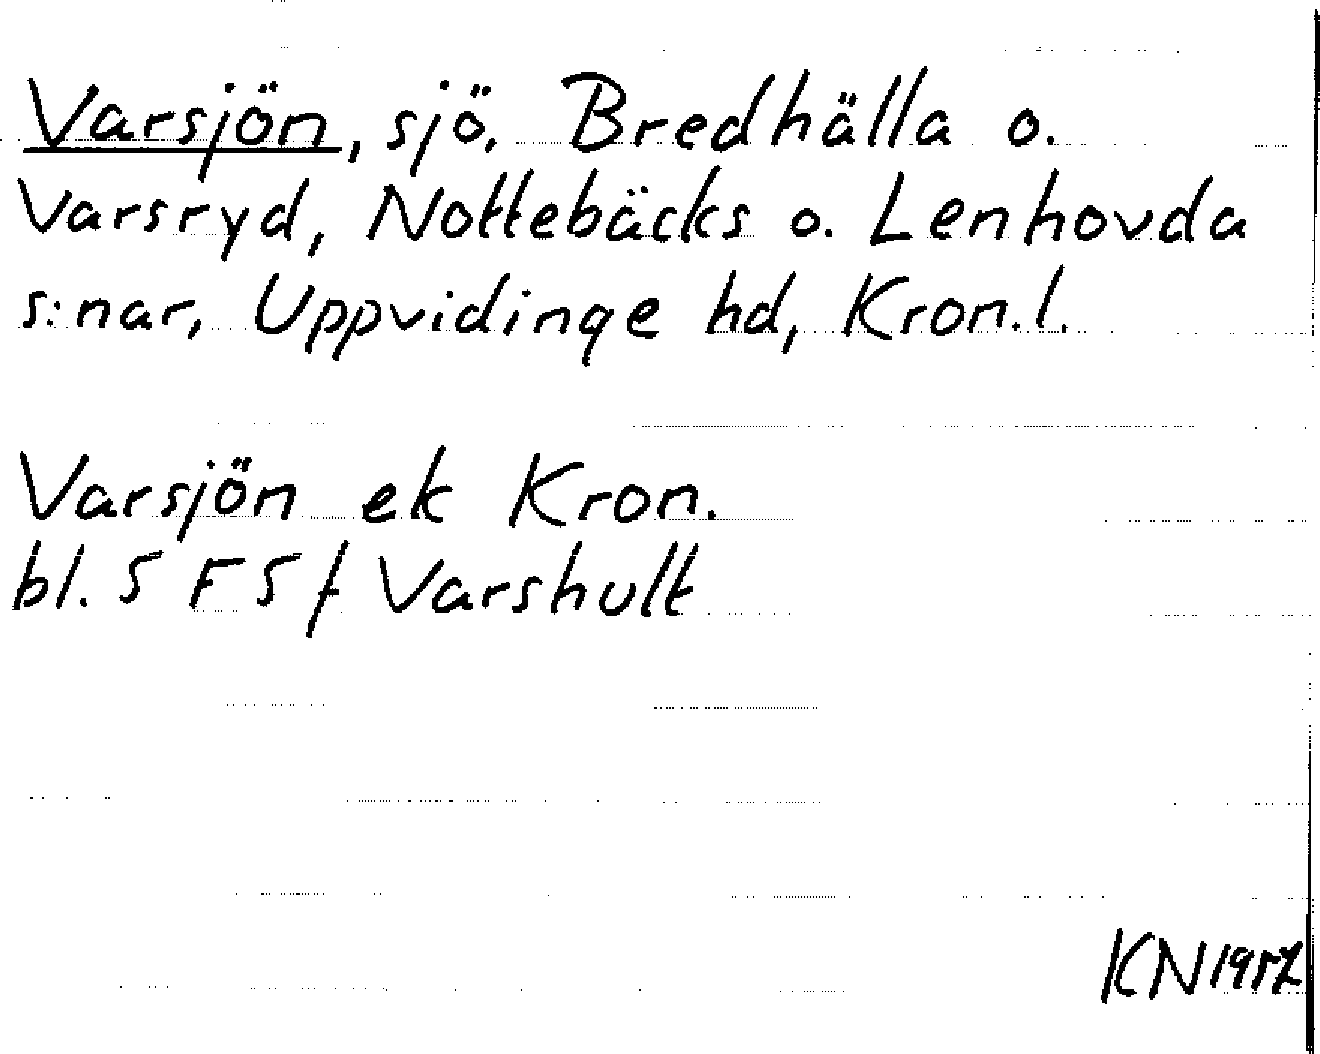 Varsjön, sjö, Bredhälla o.
Varsryd, Nottebäcks o. Lenhovda
s:nar, Uppvidinge hd, Kron.l.
Varsjön ek Kron.
bl. 5 F 5 f Varshult
KN 1957